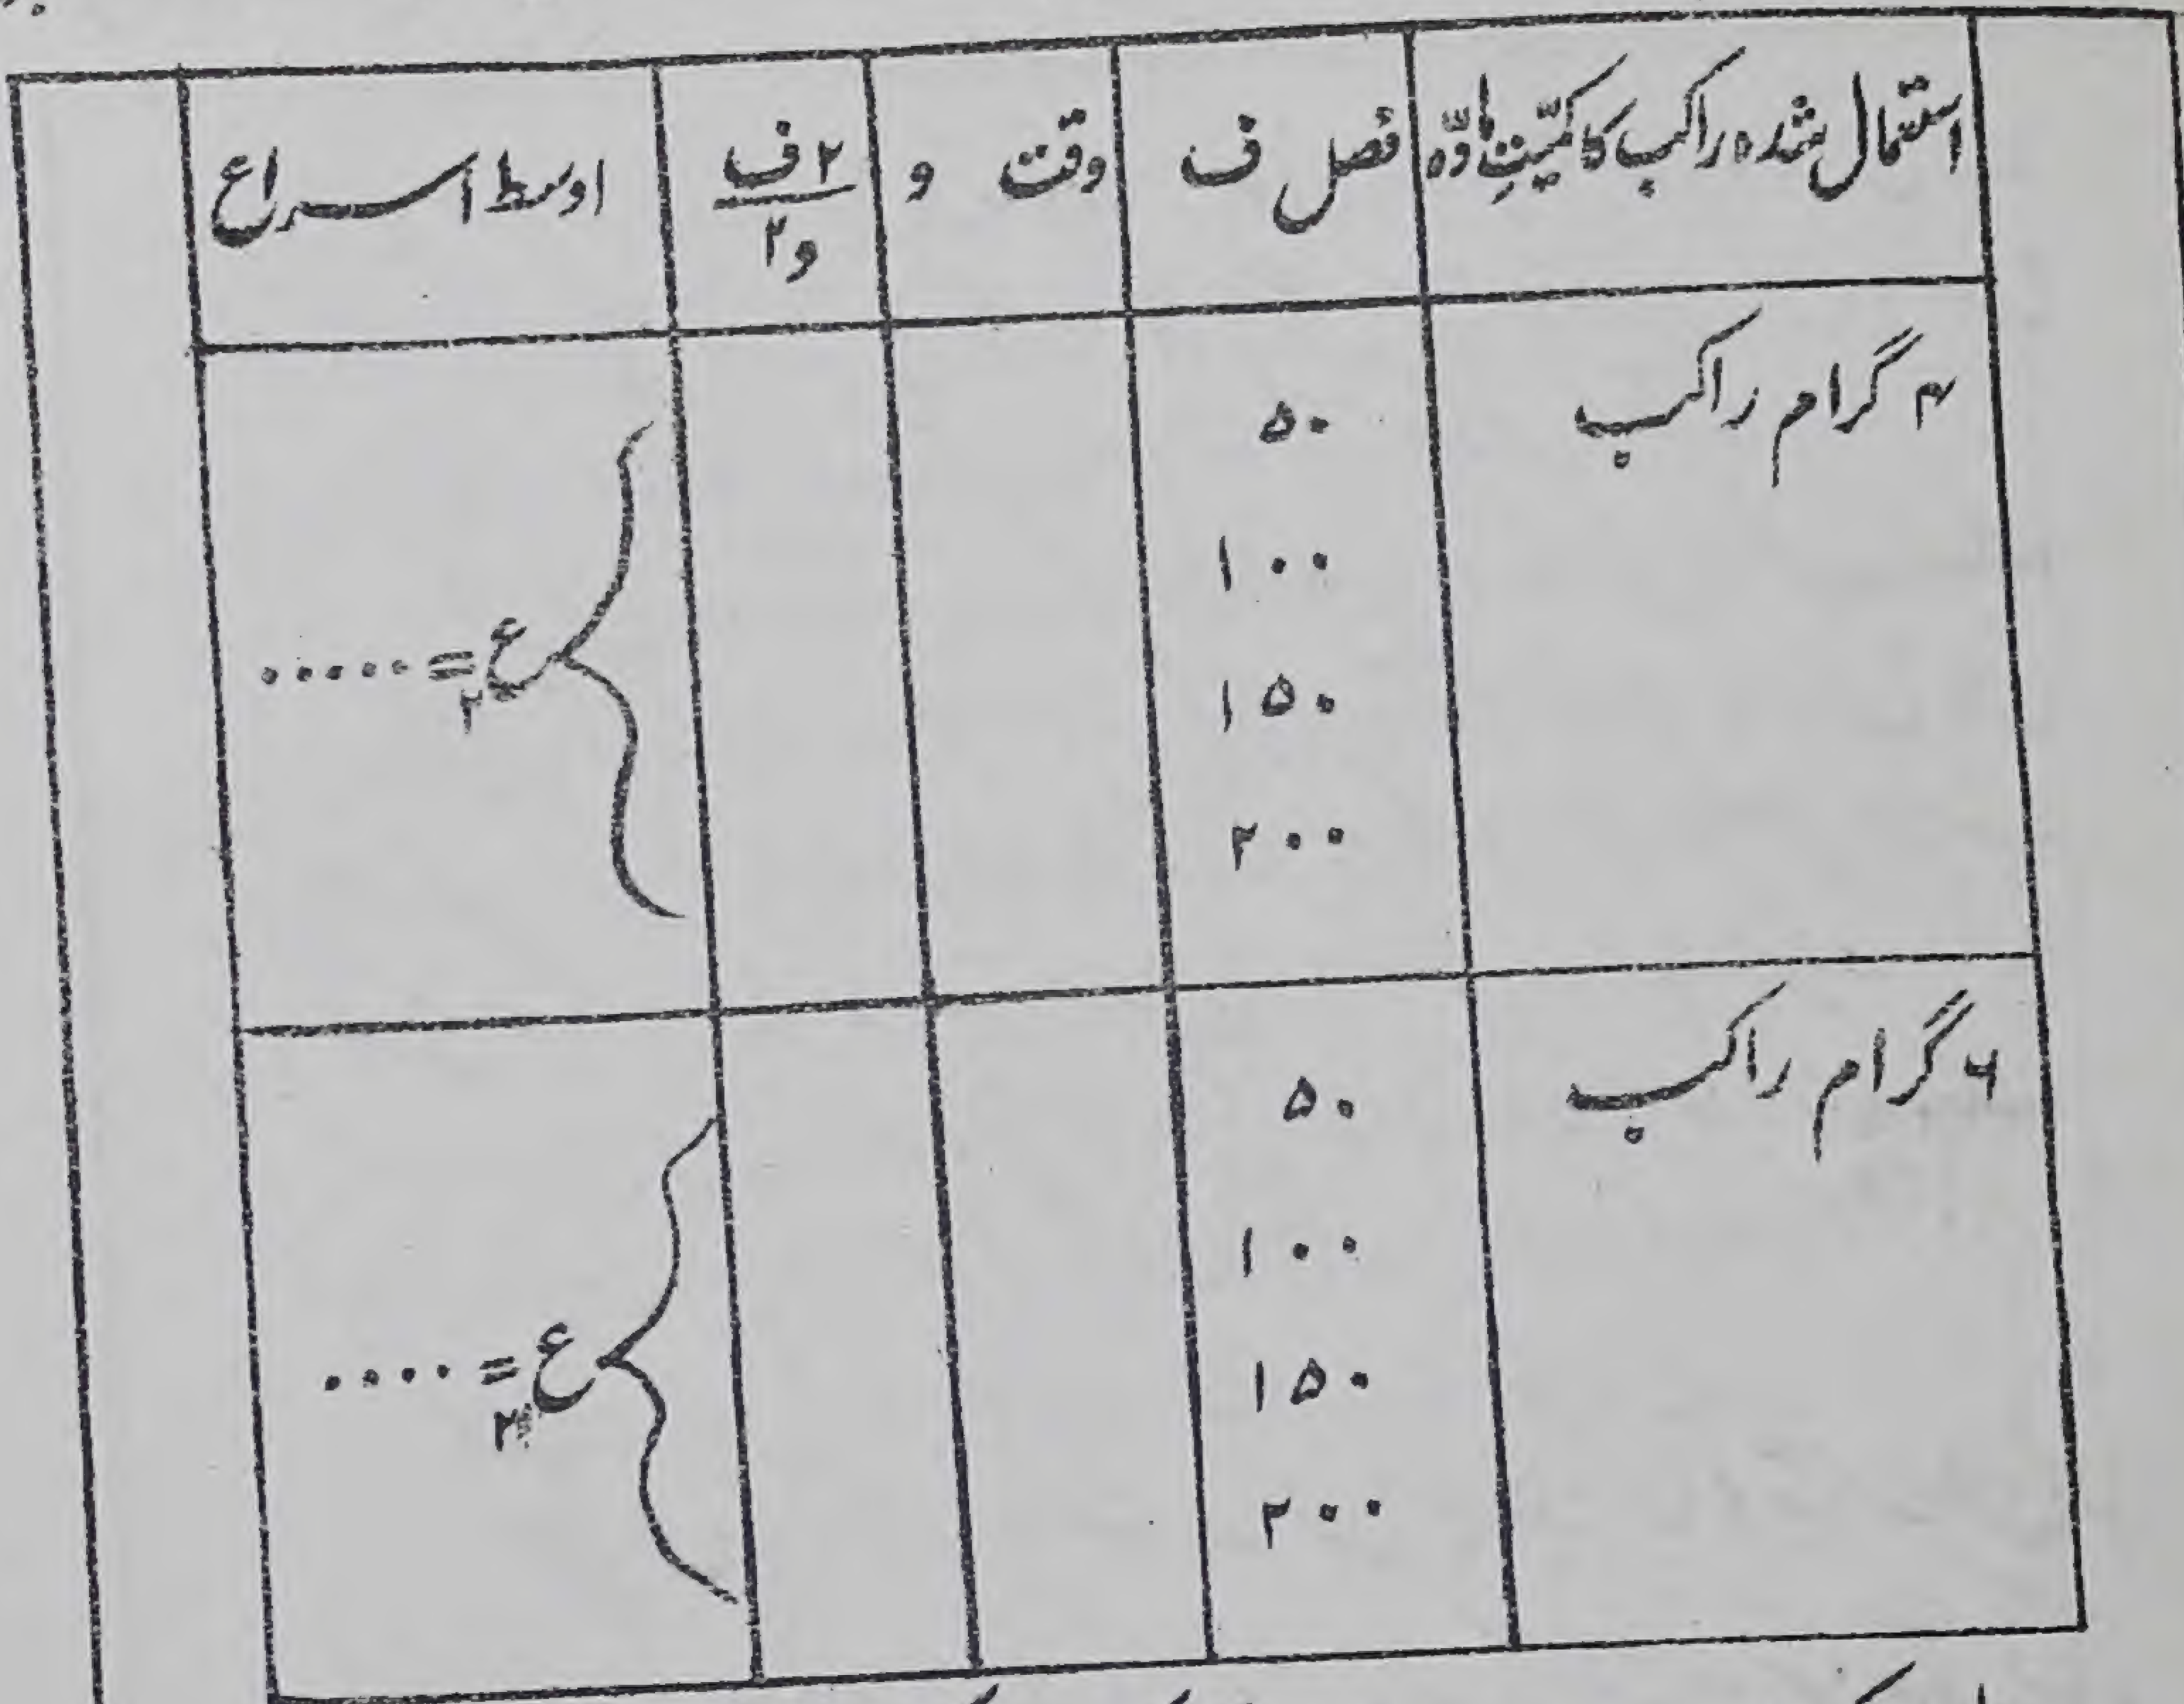 استعمال شدہ راکب کا کمیّتِ مادّہ فصل ف وقت و ۲ف اوسط اسراع
و۲
۴ گرام راکب
۵۰
۱۰۰
ع۲ = .....
۱۵۰
۲۰۰
۶ گرام راکب
۵۰
۱۰۰
ع۳ = ....
۱۵۰
۲۰۰